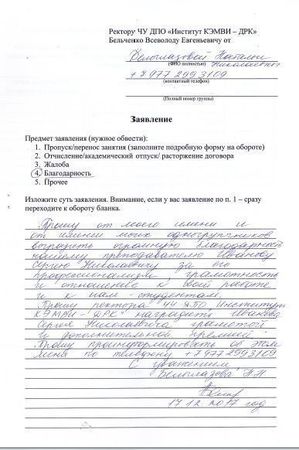 Ректору ЧУ ДПО «Институт КЭМВИ – ДРК»
Бельченко Всеволоду Евгеньевичу от
Белоглазовой Натальи
Николаевны
(ФИО полностью)
+7 977 299 31 09
(контактный телефон)
(Полный номер группы)
Заявление
Предмет заявления (нужное обвести):
1. Пропуск/перенос занятия (заполните подробную форму на обороте)
2. Отчисление/академический отпуск/ расторжение договора
3. Жалоба
4. Благодарность
5. Прочее
Изложите суть заявления. Внимание, если у вас заявление по п. 1 – сразу
переходите к обороту бланка.
Прошу от моего имени и
от имени моих одногрупников
выразить огромную благодарность
нашему преподавателю Иванову
Сергею Николаевичу за его
профессионализм, грамотность
и отношение к своей работе
и к нам - студентам.
Прошу ректора ЧУ ДПО Институт
КЭМВИ - ДРК" наградить Иванова
Сергея Николаевича грамотой
и дополнительной премией.
Прошу проинформировать об этом
меня по телефону +7 977 299 31 09
С уважением
Белоглазова Н.Н
17.12.2017 год